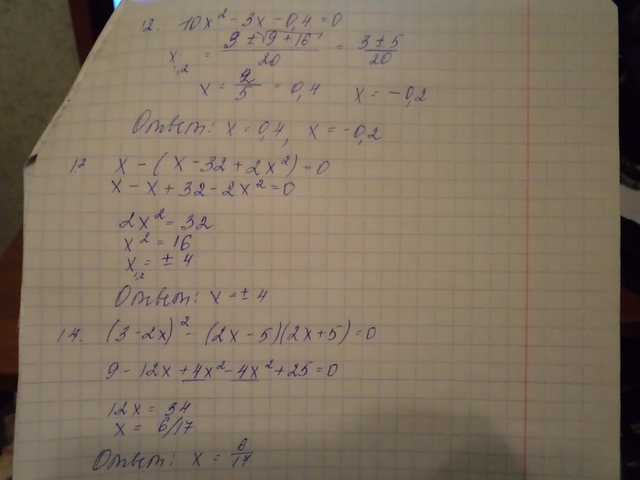 12. 10x² - 3x - 0,4 = 0
x₁,₂ = (9 ± √9 + 16)/20 = (3 ± 5)/20
x = 2/5 = 0,4 x = -0,2
Ответ: x = 0,4, x = -0,2
12 x - (x - 32 + 2x²) = 0
x - x + 32 - 2x² = 0
2x² = 32
x² = 16
x₁,₂ = ± 4
Ответ: x = ± 4
14. (3 - 2x)² - (2x - 5)(2x + 5) = 0
9 - 12x + 4x² - 4x² + 25 = 0
12x = 34
x = 6/17
Ответ: x = 6/17